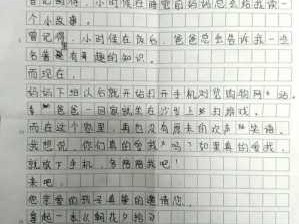 曾记得，小时候在睡觉前妈妈总会给我读一
个小故事。
曾记得，小时候在饭后，爸爸总会告诉我一些
名著里有趣的知识。
而现在，
妈妈下班以后就开始打开手机浏览购物网站。
爸爸一回家就坐在沙发上打游戏。
而在这个家里，再也没有原来的欢声笑语。
我想说，你们真的爱我吗？如果真的爱我，
就放下手机，多陪陪我吧！
来吧，
您亲爱的孩子真挚的邀请您，
拿起一本《朝花夕拾》